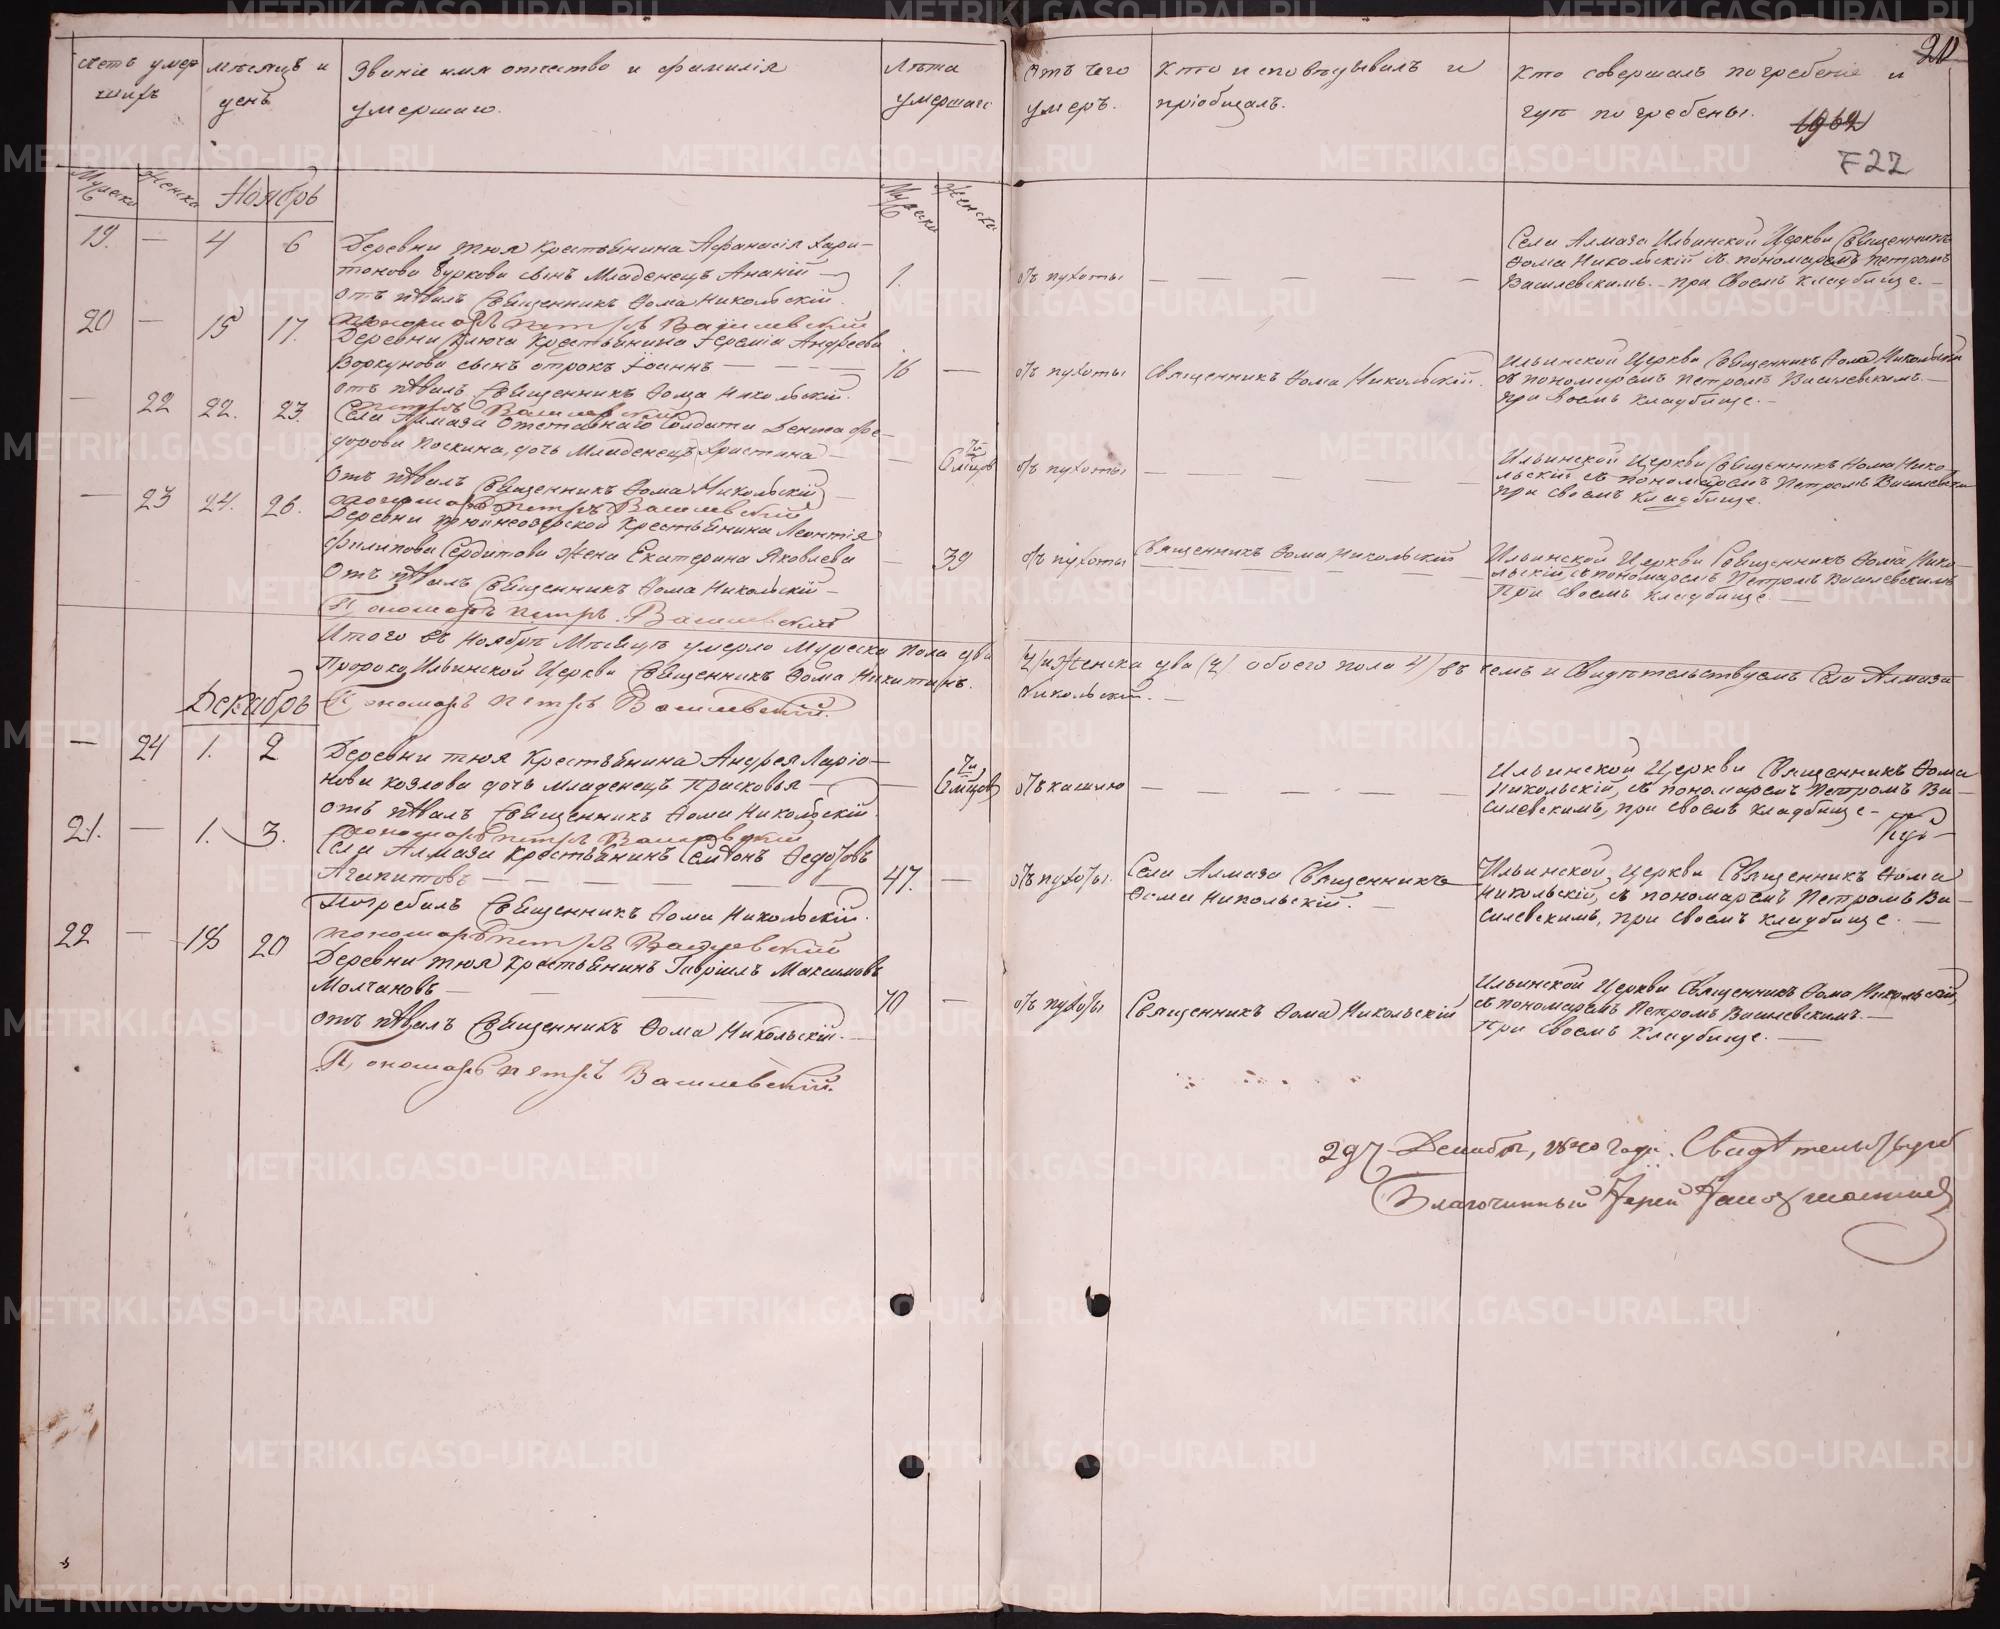 Счетъ умер
шихъ
Мѣсяцъ и
день
Званіе имя отчество и фамилія
умершаго.
Лѣта
умершаго
Отъ чего
умеръ.
Кто исповѣдывалъ и
пріобщалъ.
Кто совершалъ погребеніе и
гдѣ погребены.
20
1962
722
Мужска
Женска
Ноябрь
Мужска
Женска
19. — 4 6
Деревни Тюя крестьянина Афанасія Хари-
тонова Буркова сынъ Младенецъ Ананій —
отпѣвалъ Священникъ Ѳома Никольскій.
Пономарь Петръ Василевскій
1.
отъ пухоты
— — — —
Села Алмаза Ильинской Церкви Священникъ
Ѳома Никольскій съ пономаремъ Петромъ
Василевскимъ. при своемъ кладбище. —
20 — 15 17.
Деревни Ключа крестьянина Іереміа Андреева
Воркунова сынъ отрокъ Іоаннъ — — — —
отпѣвалъ Священникъ Ѳома Никольскій.
Петръ Василевский
16 —
отъ пухоты
Священникъ Ѳома Никольскій.
Ильинской Церкви Священникъ Ѳома Никольскій
съ пономаремъ Петромъ Василевскимъ. —
при своемъ кладбище. —
— 22 22. 23.
Села Алмаза Отставнаго Солдата Дениса Фе-
дорова Поскина, дочь Младенецъ Христина —
Отпѣвалъ Священникъ Ѳома Никольскій —
пономарь Петръ Василевский
— 6 мѣцов
отъ пухоты
— — — —
Ильинской Церкви Священникъ Ѳома Нико-
льскій съ пономаремъ Петромъ Василевски
при своемъ кладбище.
— 23 24. 26.
Деревни Тюйнеозерской Крестьянина Леонтія
Филипова Сердитова жена Екатерина Яковлева
Отпѣвалъ Священникъ Ѳома Никольскій —
Пономарь Петръ Василевский
— 39
отъ пухоты
Священникъ Ѳома Никольскій
Ильинской Церкви Священникъ Ѳома Нико-
льскій, съ пономаремъ Петромъ Василевскимъ
При своемъ кладбище. —
Итого въ Ноябрѣ Мѣсяцѣ умерло Мужеска пола два
/2/ и Женска два /2/ обоего пола 4/ въ чемъ и Свидѣтельствуемъ Села Алмаза
Пророко Ильинской Церкви Священникъ Ѳома Никитинъ.
Никольскій. —
Пономарь Петръ Василевский.
Декабрь
— 24 1. 2
Деревни Тюя Крестьянина Андрея Ларіо-
нова Козлова дочь младенецъ Прасковья —
отпѣвалъ Священникъ Ѳома Никольскій.
пономарь Петръ Василевский
— 6 мѣцов
отъ кашлю
— — — —
Ильинской Церкви Священникъ Ѳома
Никольскій, съ пономаремъ Петромъ Ва-
силевскимъ, при своемъ кладбище —
21. — 1. 3.
Села Алмаза крестьянинъ Семіонъ Ѳедотовъ
Агапитовъ — — — — —
Погребалъ Священникъ Ѳома Никольскій.
пономарь Петръ Василевский
47. —
отъ пухоты.
Села Алмаза Священникъ
Ѳома Никольскій. —
Ильинской Церкви Священникъ Ѳома
Никольскій, съ пономаремъ Петромъ Ва-
силевскимъ, при своемъ кладбище. —
22 — 18 20
Деревни Тюя Крестьянинъ Гавріилъ Максимовъ
Молчановъ — — — —
отпѣвалъ Священникъ Ѳома Никольскій. —
Пономарь Петръ Василевский.
70 —
отъ пухоты
Священникъ Ѳома Никольскій
Ильинской Церкви Священникъ Ѳома Никольскій,
съ пономаремъ Петромъ Василевскимъ. —
При своемъ Кладбище. —
29 Декабря, 1840 года. Свидѣтельствуетъ
Благочинный Іерей
METRIKI.GASO-URAL.RU